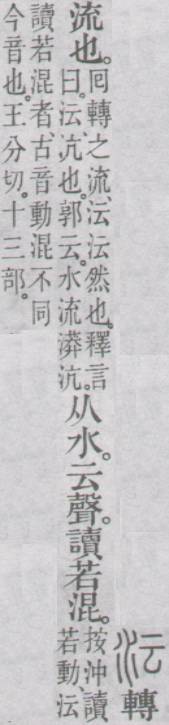 沄轉
流也。
囘轉之流沄沄然也。釋言
曰。沄、沆也。郭云。水流漭沆。
从水。云聲。讀若混。
按沖讀
若動、沄
讀若混者、古音動混不同
今音也。王分切。十三部。